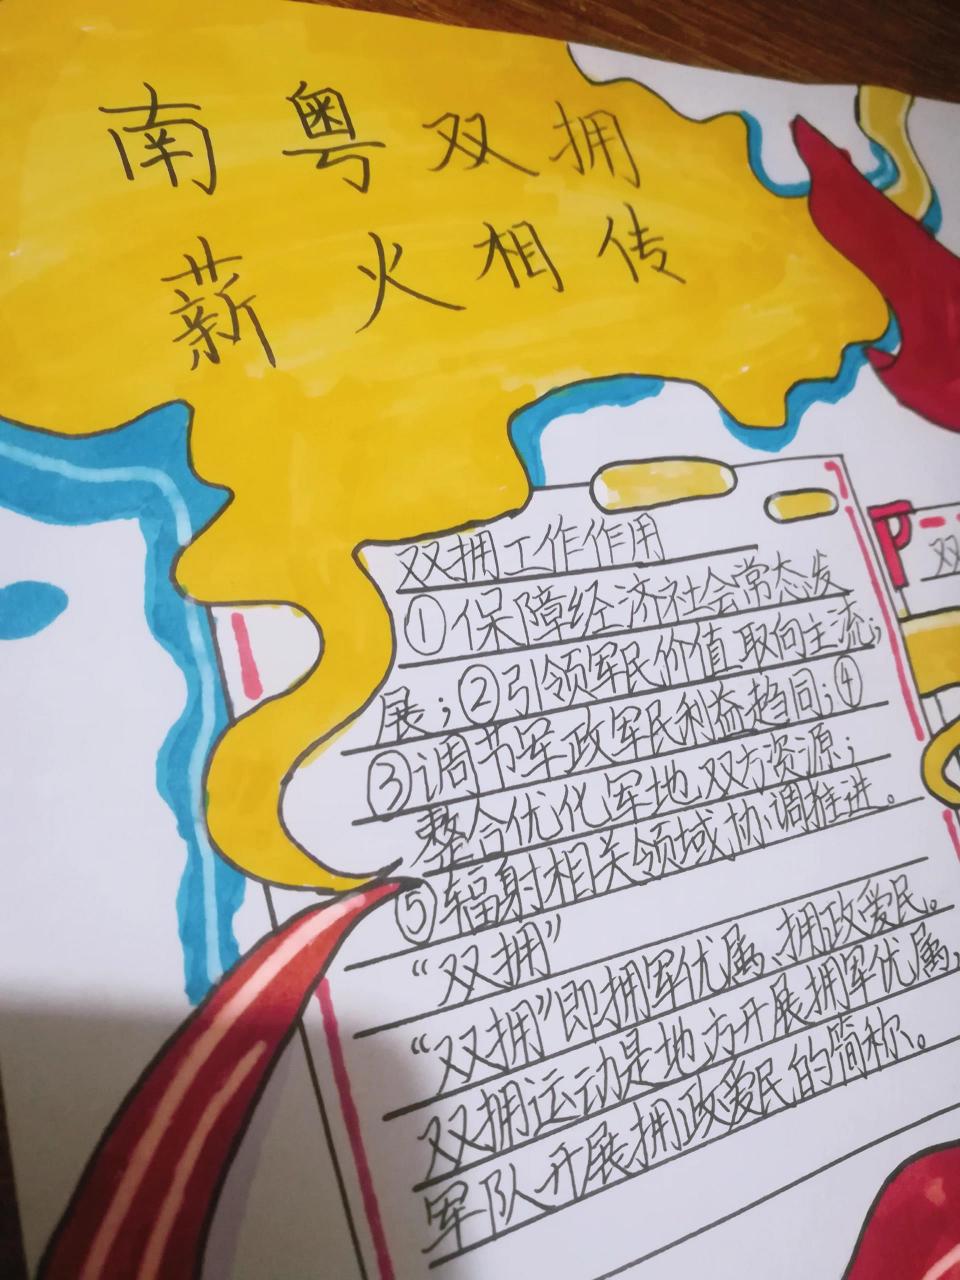 南粤双拥
薪火相传
双拥工作作用
①保障经济社会常态发
展；②引领军民价值取向主流；
③调节军政军民利益趋同；④
整合优化军地双方资源；
⑤辐射相关领域协调推进。
“双拥”
“双拥”即拥军优属、拥政爱民。
双拥运动是地方开展拥军优属，
军队开展拥政爱民的简称。
双